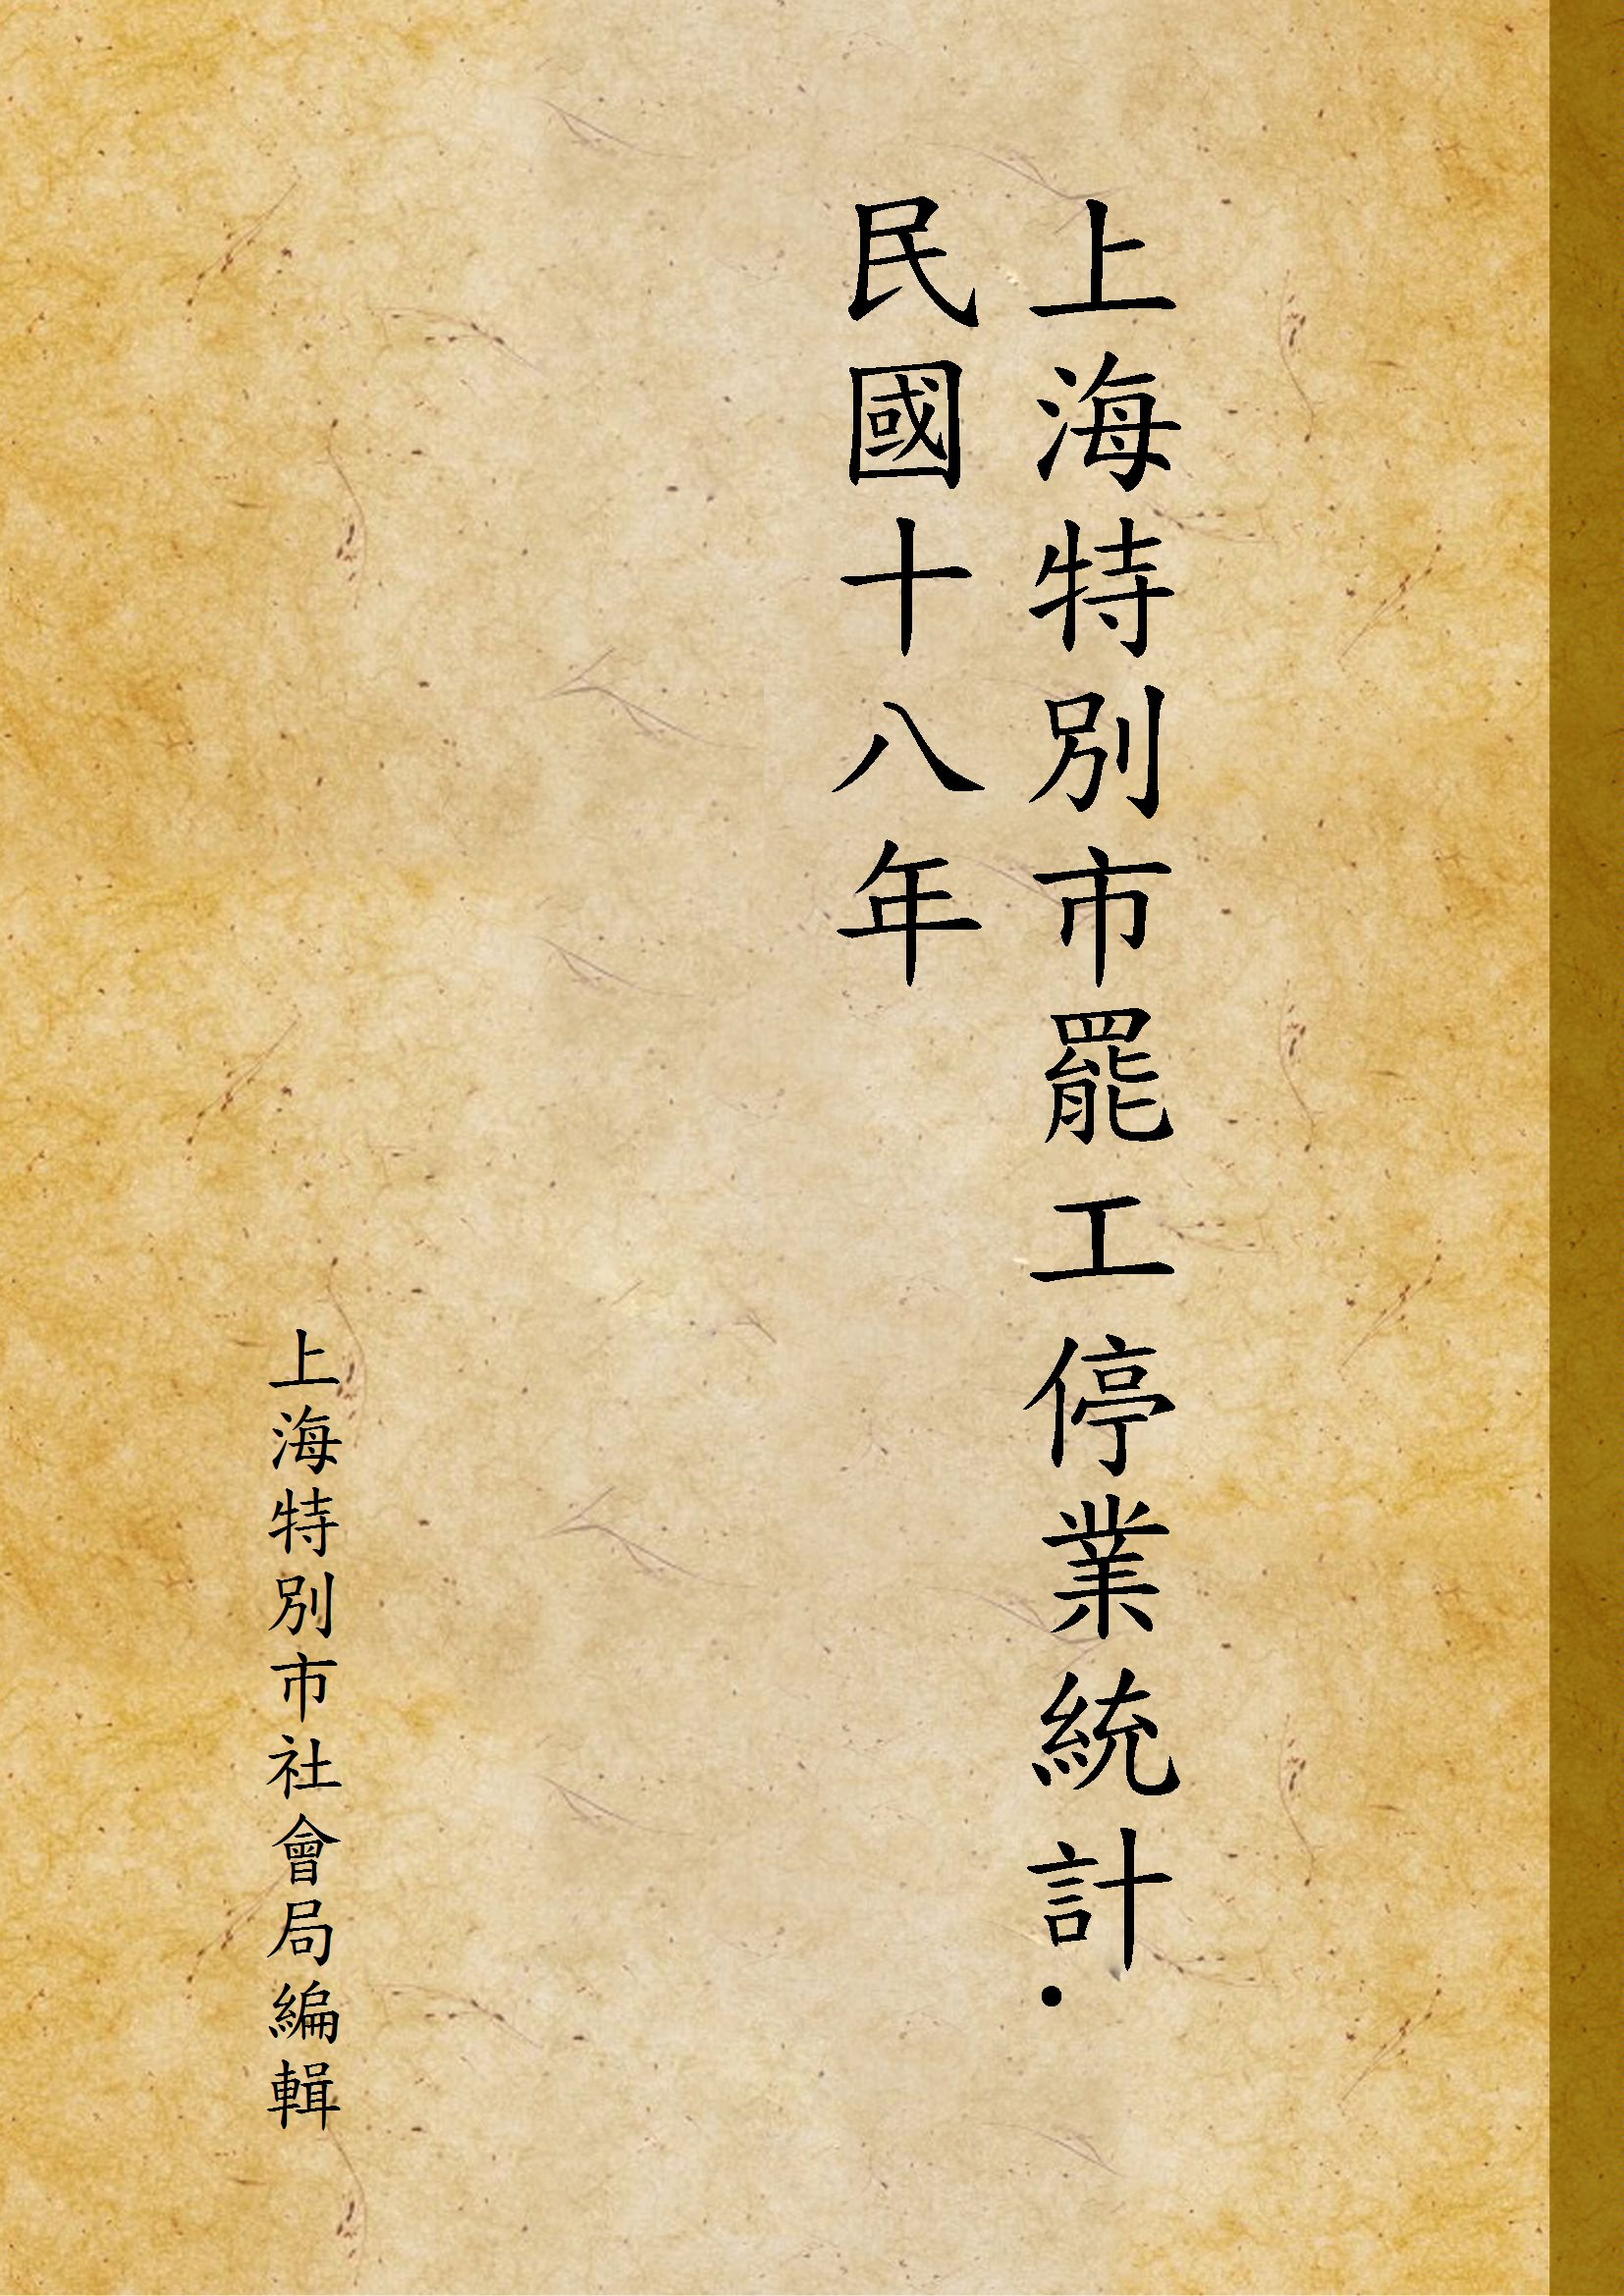 上海特別市罷工停業統計．
民國十八年
上海特別市社會局編輯